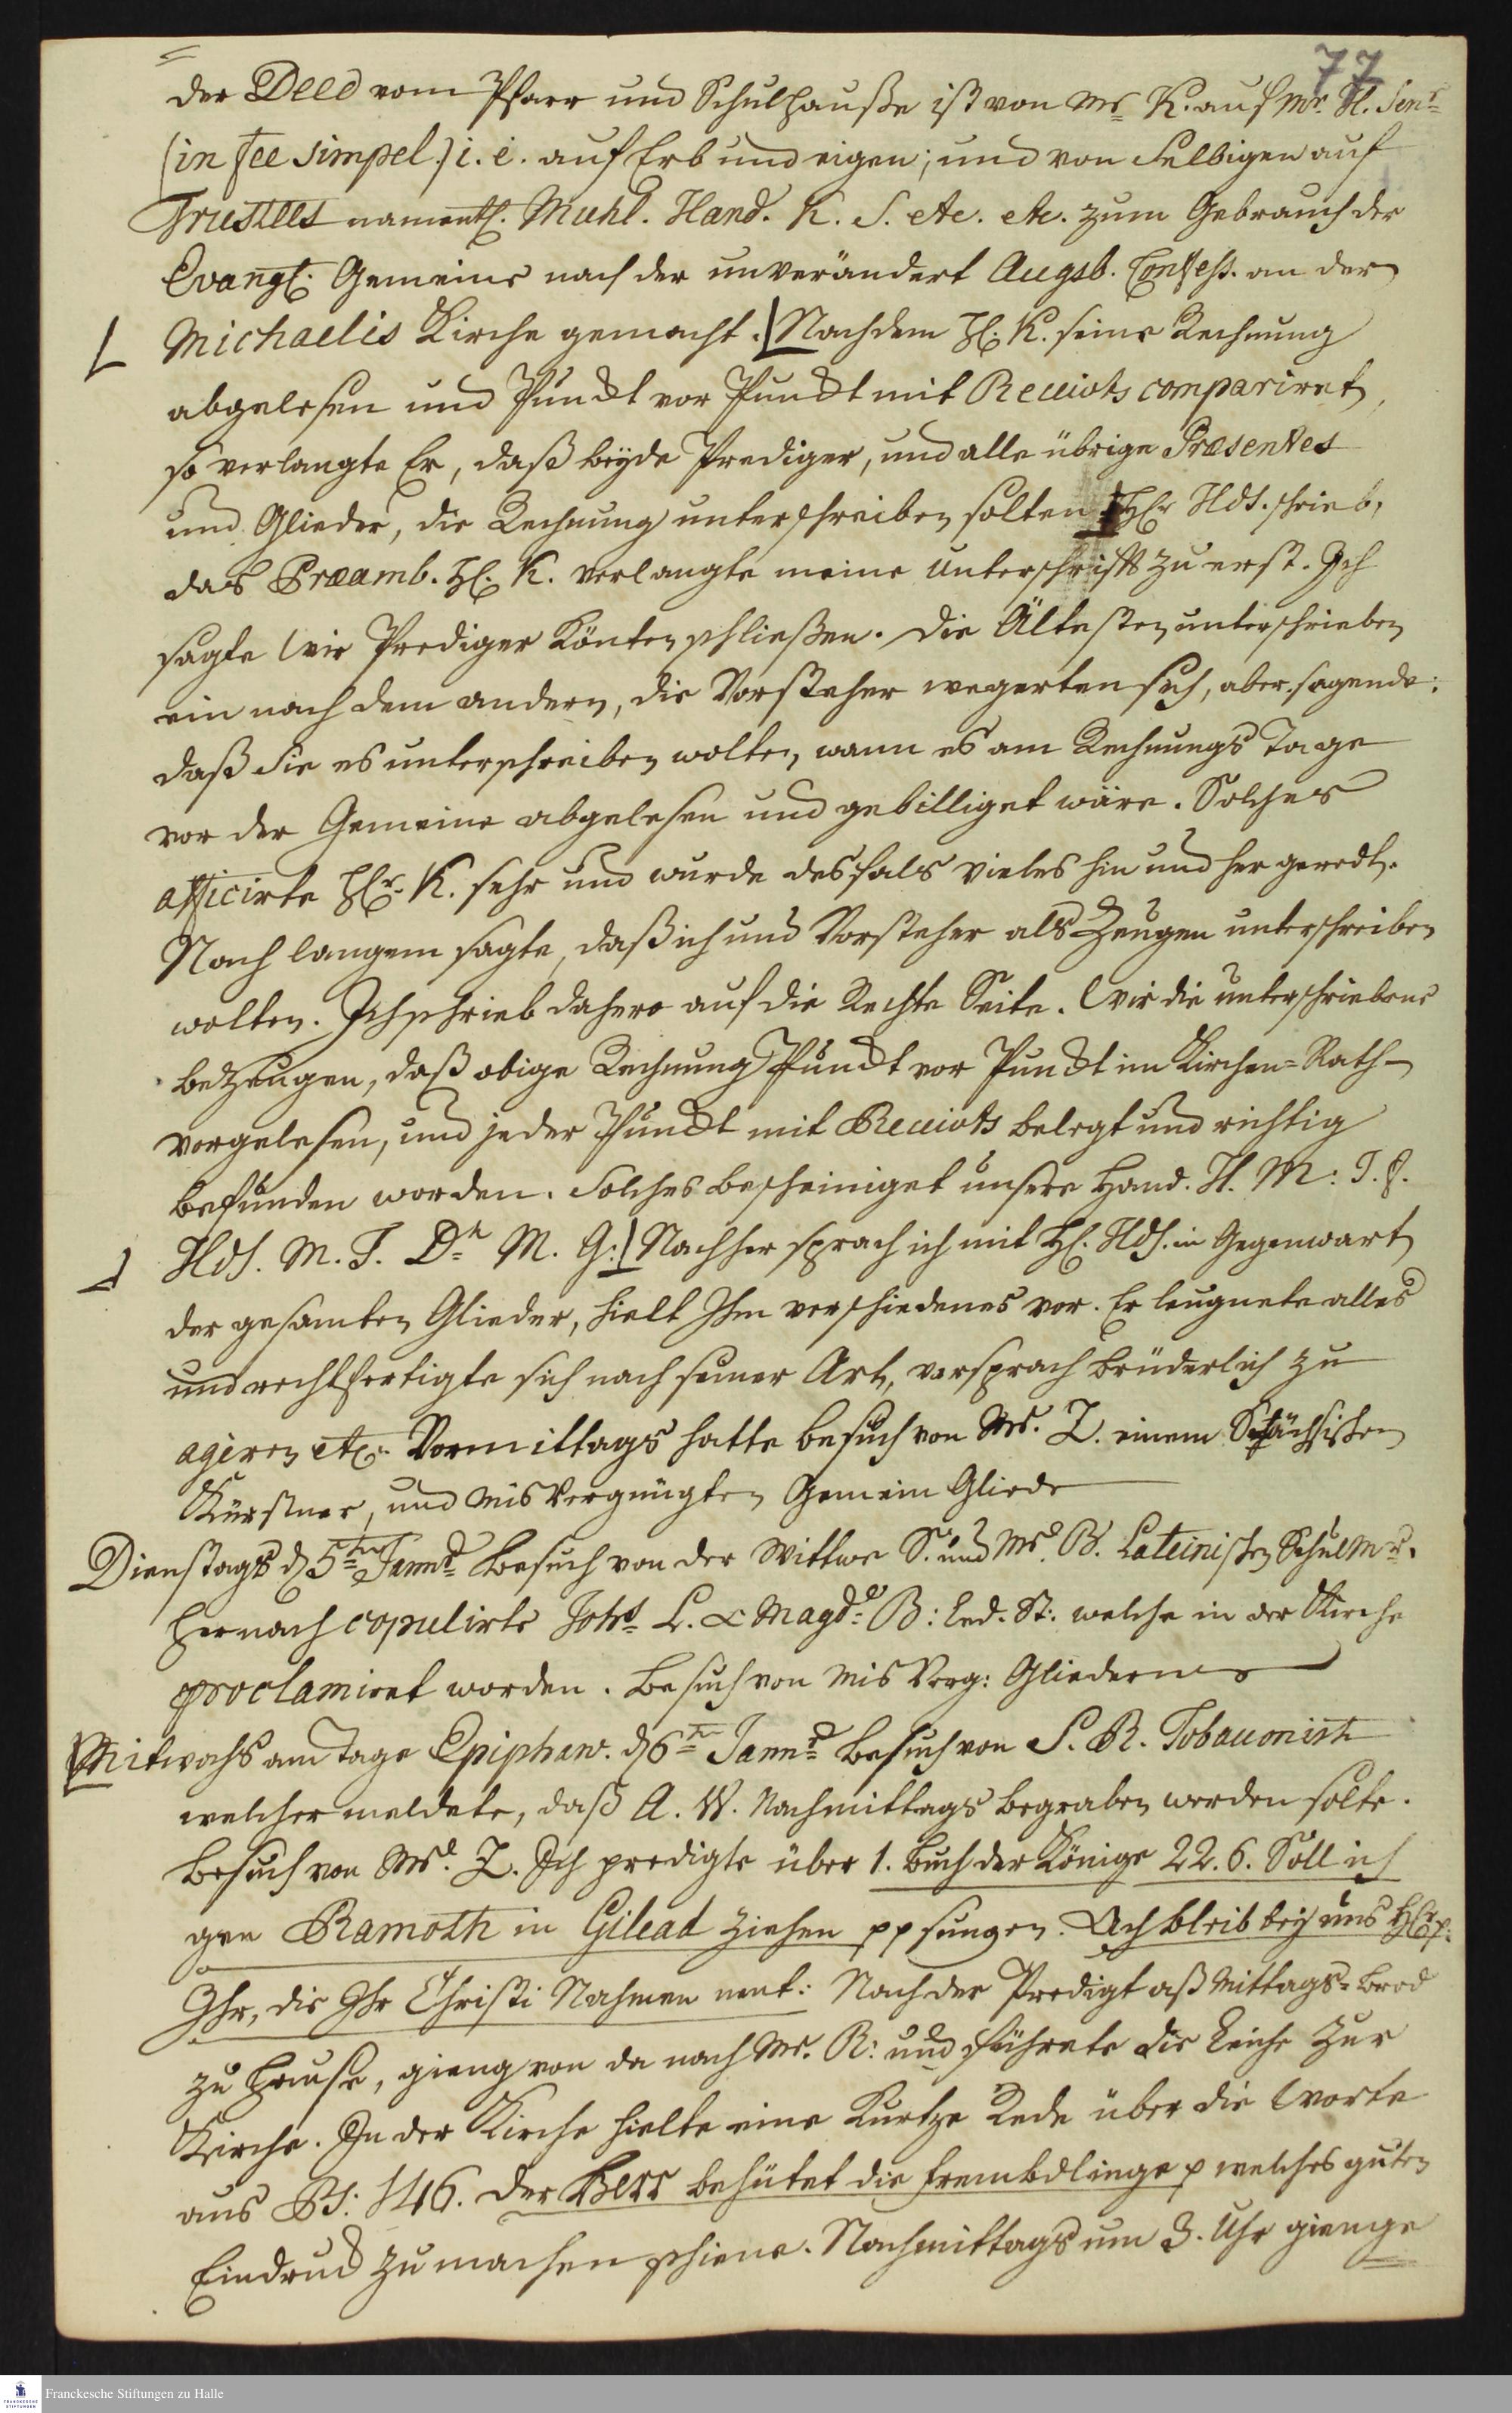 77
der Deed vom Pfarr und Schulhauße ist von Mr K. auf Mr. H. Senr
(in fee simpel.) i. e. auf Erb und eigen; und von Selbigen auf
Trustees namentl. Muhl. Hand. K. S. etc. etc. zum Gebrauch der
Evangl. Gemeine nach der unverändert Augsb. Confess. an der
Michaelis Kirche gemacht. Nachdem H. K. seine Rechnung
abgelesen und Punckt vor Punckt mit Receiots compariret,
so verlangte Er, daß beyde Prediger, und alle übrige Præsentes
und Glieder, die Rechnung unterschreiben solten Hr Hds. schrieb,
das Præamb. H. K. verlangte meine Unterschrifft zu erst. Ich
sagte wir Prediger könten schließen. die Ältesten unterschrieben
ein nach dem andern, die Vorsteher wegerten sich, aber. sagende:
daß Sie es unterschreiben wolten, wann es am Rechnungs Tage
vor der Gemeine abgelesen und gebilliget wäre. Solches
afficirte Hr. K. sehr und wurde desfals vieles hin und her geredt.
Nach langem sagte, daß ich und Vorsteher als Zeugen unterschreiben
wolten. Ich schrieb dahero auf die Rechte Seite. Wir die unterschriebene
bezeugen, daß obige Rechnung Punckt vor Punckt im Kirchen-Rath
vorgelesen, und jeder Punckt mit Receiots belegt und richtig
befunden worden. Solches bescheiniget unsere Hand. H. M: J. F.
Hds. M. J. Dr M. G: Nachher sprach ich mit H. Hds. in Gegenwart
der gesamten Glieder, hielt Ihm verschiedenes vor. Er leugnete alles
und rechtfertigte sich nach seiner Art, versprach brüderlich zu
agiren etc. Vormittags hatte besuch von Mr. Z. einem Sächsischen
Kürsner, und misvergnügten Gemein Gliede
Dienstags d 5ten Janr besuch von der Wittwe S. und Mr. B. Lateinischen Schul Mr.
hernach copulirte Johs L. & Magd: B: led. St: welche in der Kirche
proclamiret worden. besuch von misverg: Gliedern
Mitwochs am Tage Epiphan. d 6ten Janr besuch von S. R. Tobaconist
welcher meldete, daß A. W. Nachmittags begraben werden solte.
besuch von Mr. Z. Ich predigte über 1. Buch der Könige 22. 6. Soll ich
gen Ramoth in Gilead ziehen pp sungen. Ach bleib bey uns Hr p:
Ihr, die Ihr Christi Nahmen nent: Nach der Predigt aß Mittags-Brod
zu Hause, gieng von da nach Mr. R: und führete die Leiche zur
Kirche. In der Kirche hielte eine Kurtze Rede über die Worte
aus Ps: 146. der Herr behütet die frembdlinge p welches guten
Eindruck zu machen schiene. Nachmittags um 3. Uhr gienge
Franckesche Stiftungen zu Halle